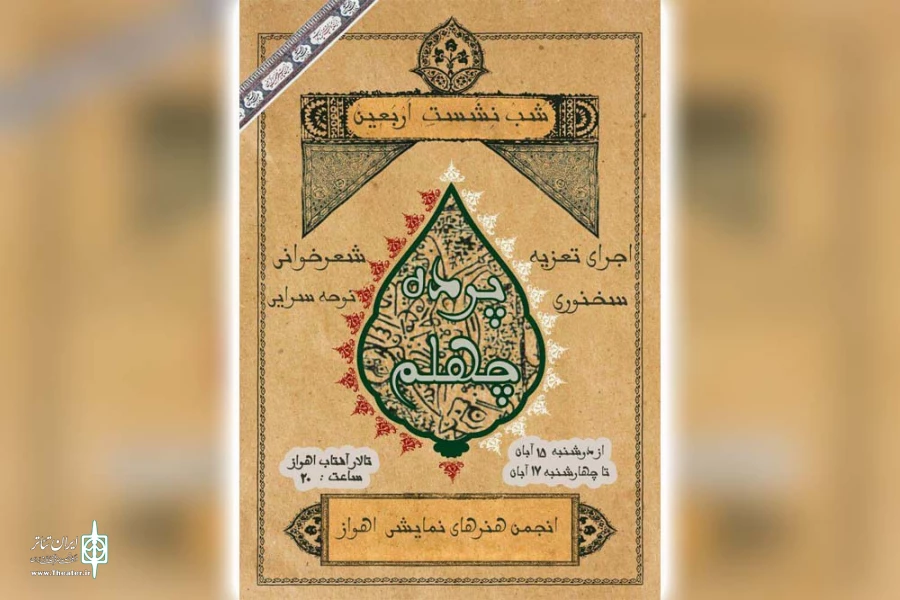 شب نشست اربعین
اجرای تعزیه
شعرخوانی
سخنوری
نوحه سرایی
پرده
چهلم
از دوشنبه ۱۵ آبان
تا چهارشنبه ۱۷ آبان
تالار آفتاب اهواز
ساعت : ۲۰
انجمن هنرهای نمایشی اهواز
ایران تئاتر
www.Theater.ir